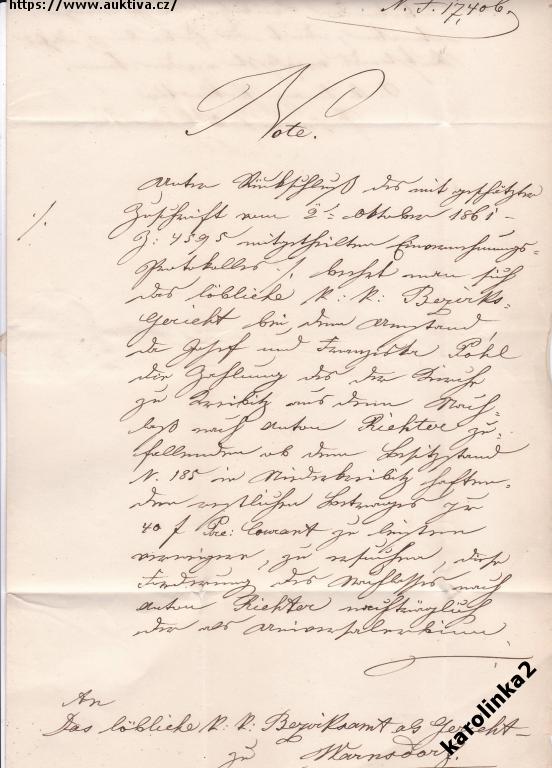 https://www.auktiva.cz/
N. F. 17,406.
Note.
Unter Rückschluß des mit geschätzter
Zuschrift vom 2t Oktober 1861
Z: 4595 mitgetheilten Einvernehmungs-
Protokolles ·/. beehrt man sich
das löbliche k: k: Bezirks-
Gericht bei dem Umstand
da Josef und Franziska Pohl
die Zahlung des der Kirche
zu Kreibitz aus dem Nach-
laß nach Anton Richter zu-
fallenden ob dem Besitzstand
N. 185 in Niederkreibitz haften-
den restlichen Betrages pr
40 f Courant zu leisten
verweigern, zu ersuchen, diese
Forderung des Nachlasses nach
Anton Richter nachträglich
der als Universalerbinn
An
Das löbliche k. k. Bezirksamt als Gericht
zu Warnsdorf.
karolinka2